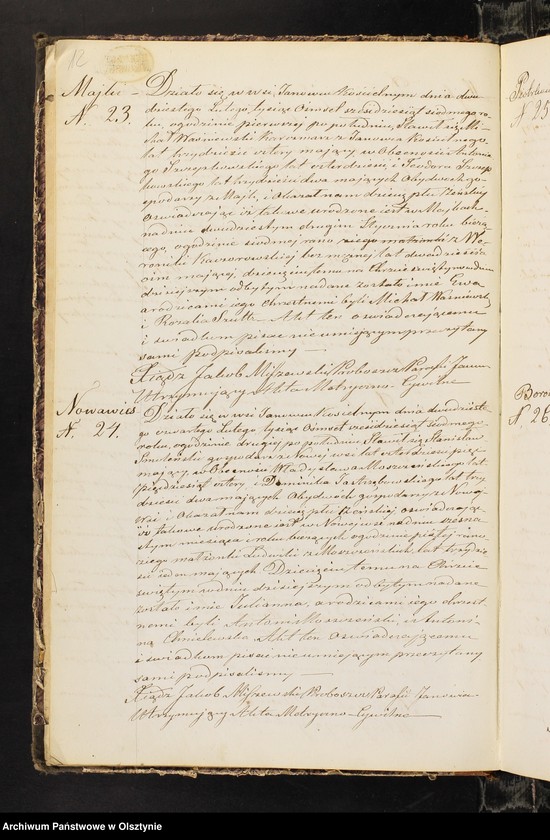 12
Majki –
N. 23.
Działo się w wsi Janowie Kościelnym dnia dwu
dziestego Lutego, tysiąc Ośmset sześćdziesiąt siódmego ro-
ku, o godzinie pierwszej po południu, Stawił się Mi-
chał Waśniewski z Janowa Kościelnego
lat trzydzieści cztery mający w Obecności Antonie-
go lat czterdzieści, i Teodora
lat trzydzieści dwa mających Obydwóch go-
spodarzy z Majk, i Okazał nam dziecię płci żeńskiej
Oświadczając iż takowe urodzone jest w Majkach
na dniu dwudziestym drugim Stycznia roku bieżą-
cego, o godzinie siódmej rano z
Kaworowskiej lat dwadzieścia
ośm mającej, dziecięciu temu na Chrzcie świętym w dniu
dzisiejszym odbytym nadane zostało imie Ewa
a rodzicami jego Chrzestnemi byli Michał Waśniewski
i Rozalia Akt ten oświadczającemu
i świadkom pisać nieumiejącym przeczytany
sami podpisaliśmy —
Xiądz Jakób Miszewski Proboszcz Parafii Janow
Utrzymujący Akta Metryczno-Cywilne
Nowawieś
N. 24.
Działo się w wsi Janowie Kościelnym dnia dwudzieste-
go czwartego Lutego tysiąc Ośmset sześćdziesiąt siódmego
roku, o godzinie drugiej po południu, Stawił się Stanisław
gospodarz z Nowej wsi lat czterdzieści pięć
mający, w Obecności Władysława Moszczeńskiego lat
pięćdziesiąt cztery i Dominika Jastrzębowskiego lat trzy
dzieści dwa mających Obydwóch gospodarzy z Nowej
wsi i Okazał nam dziecię płci żeńskiej oświadczając
iż takowe urodzone jest w Nowej wsi na dniu szesna-
stym miesiąca i roku bieżących o godzinie piątej rano
z jego małżonki Ludwiki z Moszczeńskich, lat trzydzie
ści siedm mających Dziecięciu temu na Chrzcie
świętym w dniu dzisiejszym odbytym nadane
zostało imie Julianna, a rodzicami jego chrzest-
nemi byli Antoni Moszczeński, i Antoni-
na Chmielewska Akt ten oświadczającemu
i świadkom pisać nieumiejącym przeczytany
sami podpisaliśmy —
Xiądz Jakób Miszewski Proboszcz Parafii Janowa
Utrzymujący Akta Metryczno-Cywilne
N. 25
N. 26
Archiwum Państwowe w Olsztynie